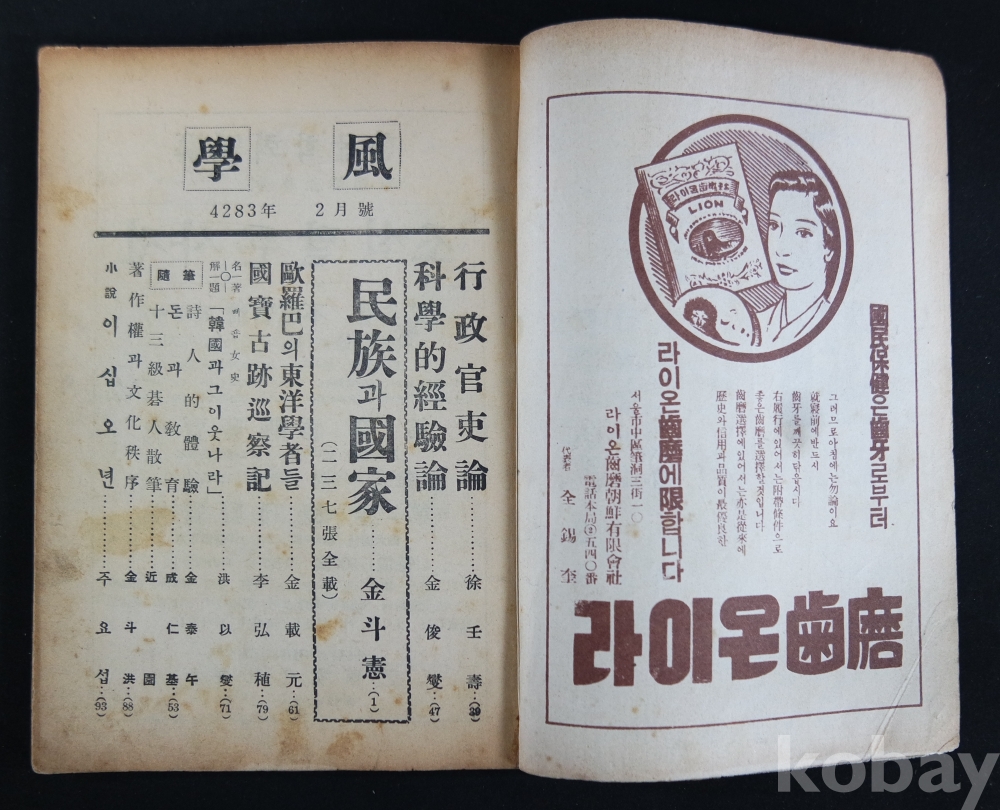 學風
4283年 2月號
行政官吏論………徐壬壽…(39)
科學的經驗論………金俊燮…(47)
民族과國家………金斗憲…(1)
(二三七張全載)
歐羅巴의東洋學者들………金載元…(61)
國寶古跡巡察記………李弘稙…(79)
名著
解題
(一〇)
女史
「韓國과그이웃나라」………洪以燮…(71)
隨筆
詩人的體驗………金泰午
돈과敎育………成仁基…(53)
十三級碁人散筆………近園
著作權과文化秩序………金斗洪…(88)
小說 이십오년………주요섭…(93)
라이온齒磨
LION
國民保健은齒牙로부터
그러므로아침에는勿論이요
就寢前에반드시
齒牙를깨끗히닦읍시다
右履行에있어서는附帶條件으로
좋은齒磨를選擇할것입니다
齒磨選擇에있어서는亦是從來에
歷史와信用과品質이最優良한
라이온齒磨에限합니다
서울市中區筆洞三街一〇
라이온齒磨朝鮮有限會社
電話本局(2)五四〇番
代表者 全錫奎
라이온齒磨
kobay